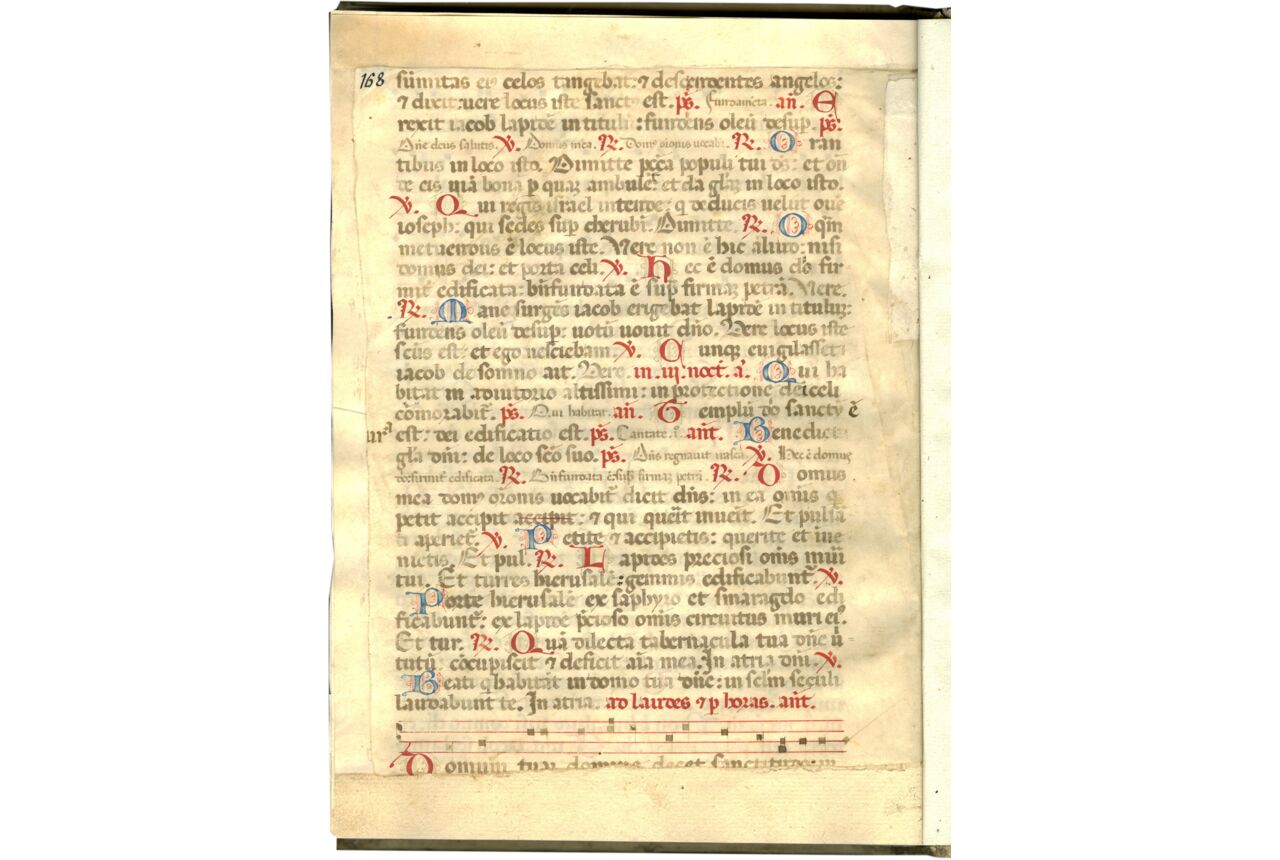 168 sūmitas eiꝰ celos tangebat: ⁊ descendentes angelos:
⁊ dixit: uere locus iste sanctꝰ est. p̄s. Fundamēta. an̄. E
rexit iacob lapidē in titulū: fundens oleū desup. p̄s.
Dn̄e deus salutis. ℣. Domus mea. ℟. Domꝰ orōnis uocabit̄. ℟. O ran
tibus in loco isto. Dimitte pc̄ca populi tui ds̄: et osn
de eis uiā bonā p quaꝫ ambulēt et da glāꝫ in loco isto.
℣. Q ui regis israel intende: q deducis uelut ouē
ioseph: qui sedes sup cherubī. Dimitte. ℟. O qm̄
metuendus ē locus iste. Vere non ē hic aliud: nisi
domus dei: et porta celi. ℣. H ec ē domus dn̄i fir
mit̄ edificata: bn̄ fundata ē sup firmaꝫ petrā. Vere.
℟. M ane surgēs iacob erigebat lapidē in tituluꝫ:
fundens oleū desup: uotū uouit dn̄o. Vere locus iste
scūs est: et ego nesciebam. ℣. C unqꝫ euigilasset
iacob de somno ait. Vere. in. iij. noct̄. a. Q ui ha
bitat in adiutorio altissimi: in protectione dei celi
cōmorabit̄. p̄s. Qui habitat. an̄. T emplū dn̄i sanctū ē
est: dei edificatio est. p̄s. Cantate. an̄t. Benedicta
glā dn̄i: de loco scō suo. p̄s. Dn̄s regnauit irascā. ℣. Hec ē domus
dn̄i firmit̄ edificata. ℟. Bn̄ fundata ē: sup firmaꝫ petrā. ℟. D omus
mea domꝰ orōnis uocabit̄ dicit dn̄s: in ea omīs q
petit accipit accipit: ⁊ qui querit inuenit. Et pulsā
ti aperiet̄. ℣. P etite ⁊ accipietis: querite et inue
nietis. Et pul. ℟. L apides preciosi om̄s muri
tui. Et turres hierusalē: gemmis edificabunt̄. ℣.
Porte hierusalē ex saphyro et smaragdo edi
ficabunt̄: ex lapide p̄cioso omīs circuitus muri eiꝰ.
Et tur. ℟. Q uā dilecta tabernacula tua dn̄e uir
tutū: cōcupiscit ⁊ deficit aīa mea. In atria dn̄i. ℣.
Beati q habitāt in domo tua dn̄e: in sclm̄ seculi
laudabunt te. In atria. ad laudes ⁊ p horas. an̄t.
D omum tuaꝫ domine decet sanctitudo in